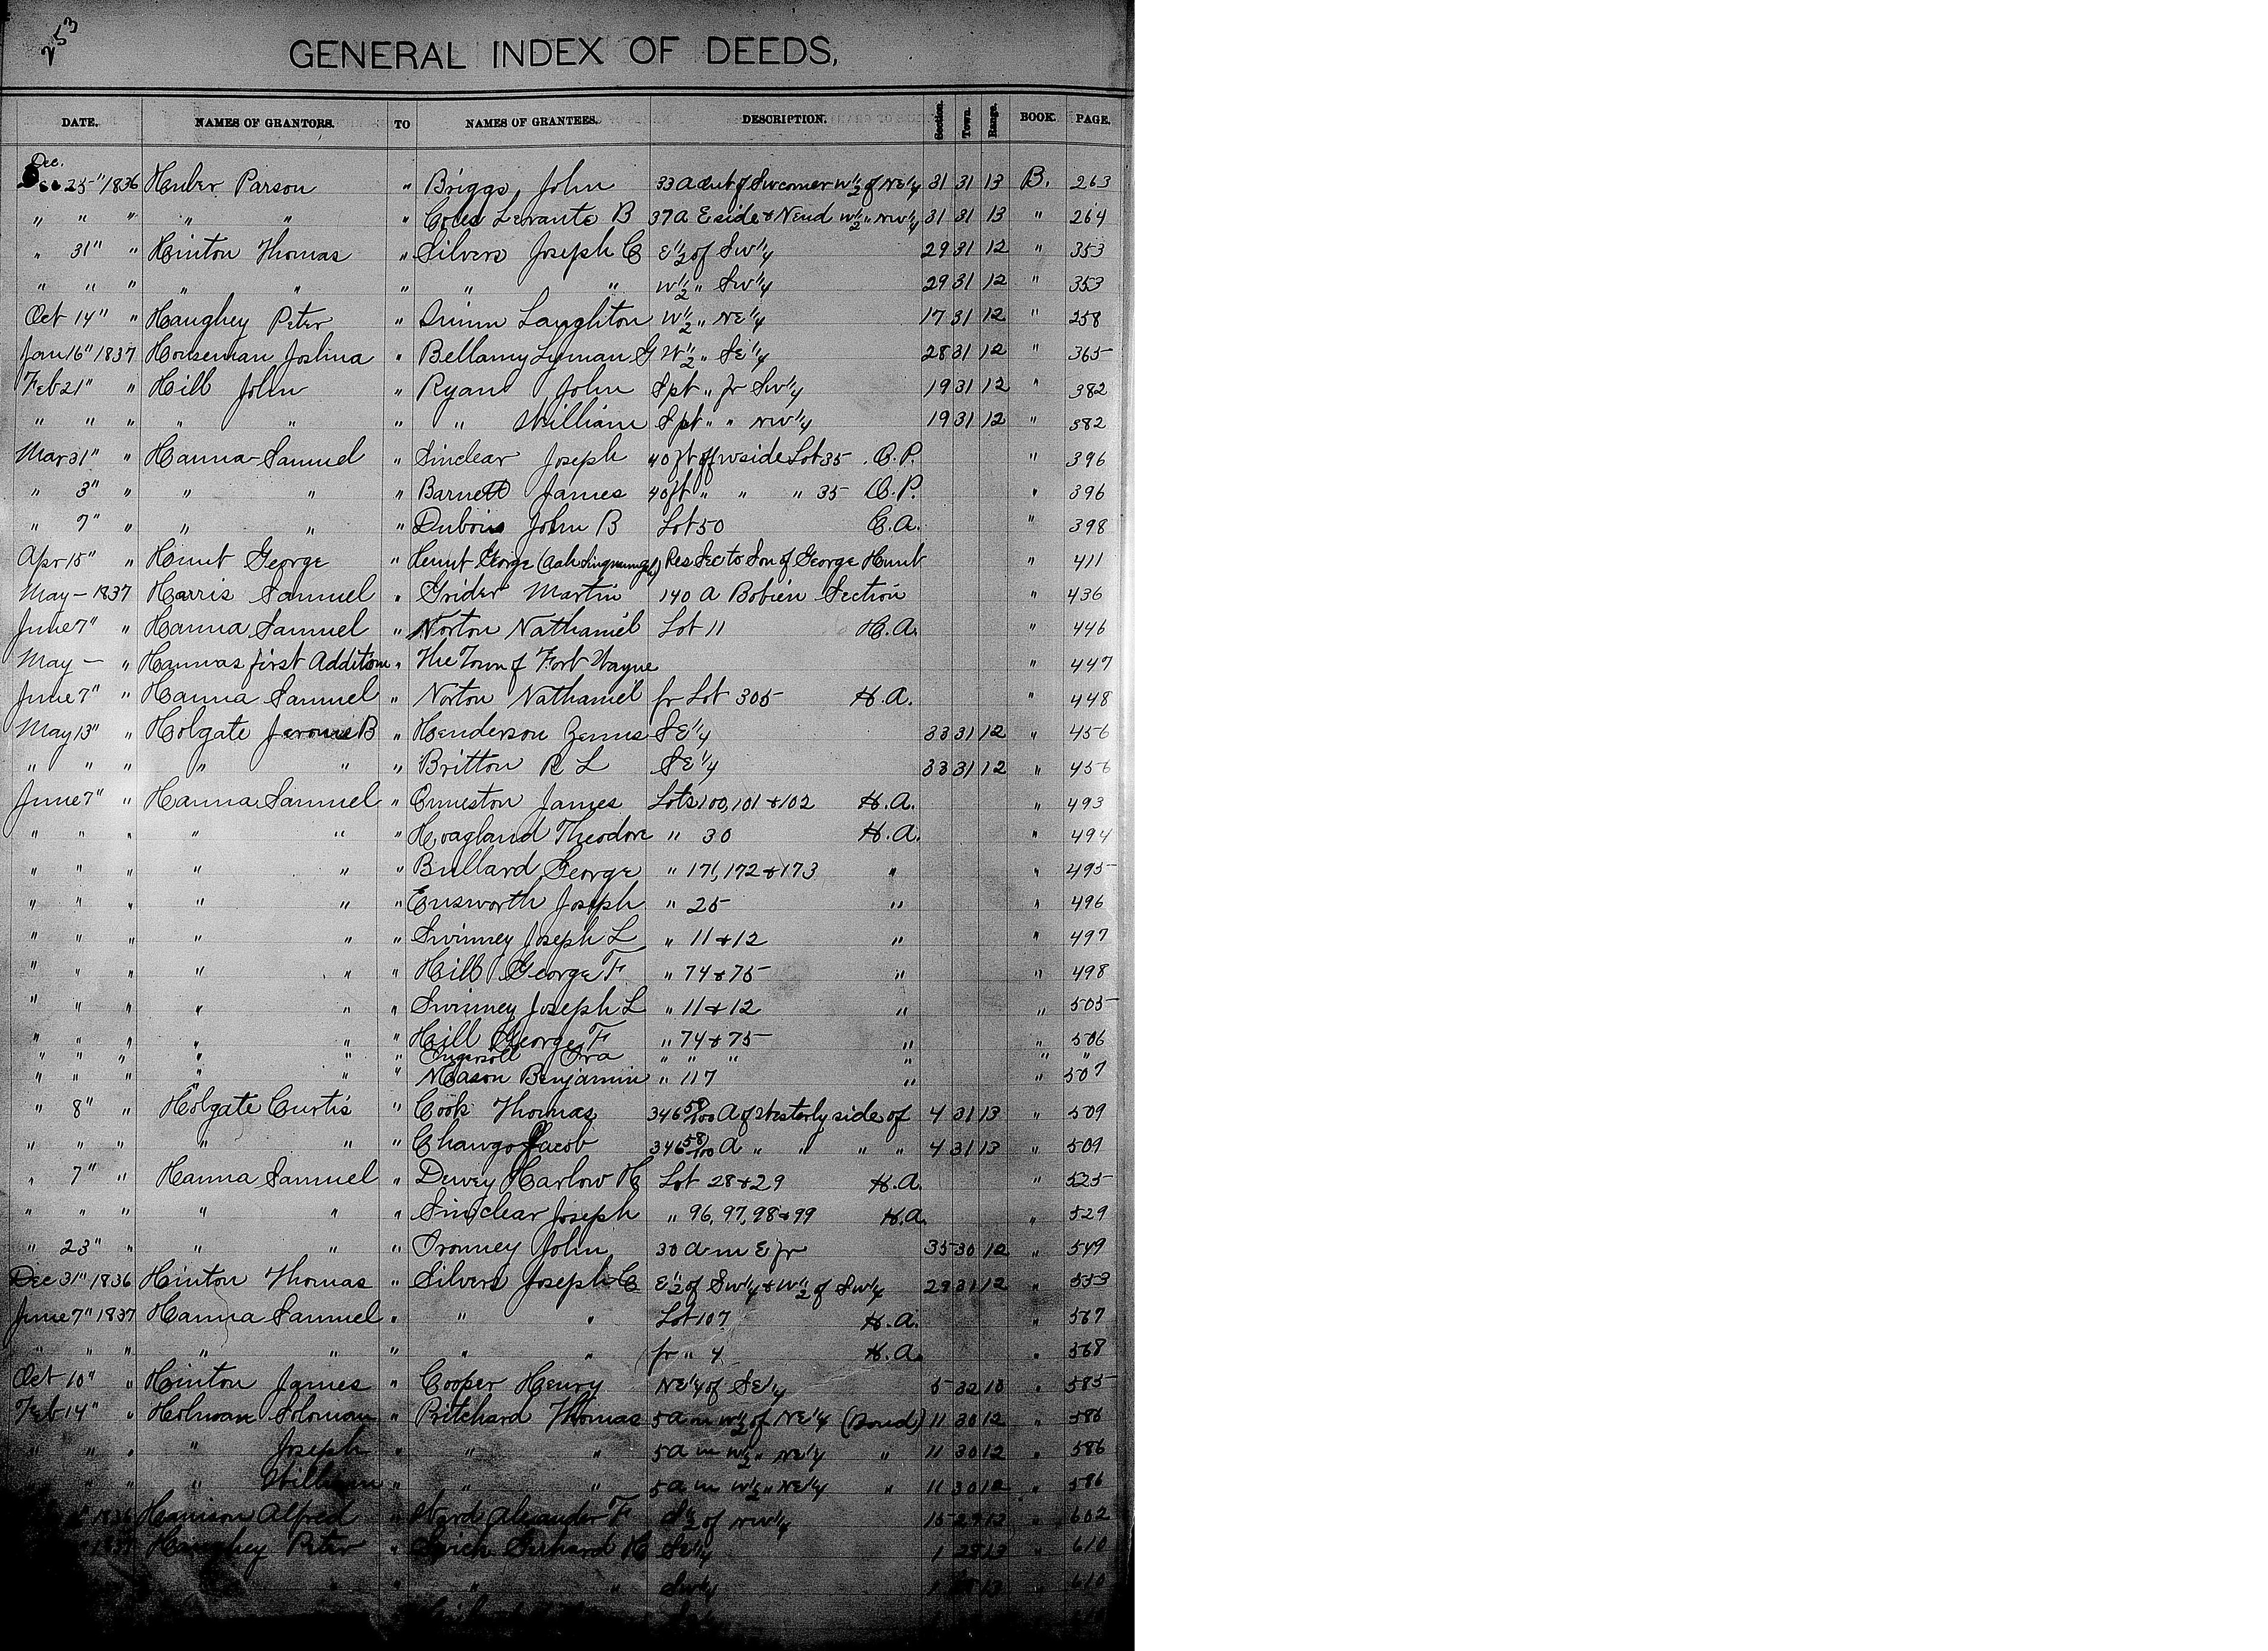 253
GENERAL INDEX OF DEEDS,
DATE. NAMES OF GRANTORS. TO NAMES OF GRANTEES. DESCRIPTION. Section. Town. Range. BOOK. PAGE.
Dec.
25" 1836 Huber Parson " Briggs, John 33 a out of Sw corner W 1/2 of NE 1/4 31 31 13 B. 263
" " " " " " Coles Levante B 37 a E side & N end W 1/2 " NW 1/4 31 31 13 " 264
" 31" " Hinton Thomas " Silvers Joseph C E 1/2 of Sw 1/4 29 31 12 " 353
" " " " " " " " W 1/2 " Sw 1/4 29 31 12 " 353
Oct 14" " Haughey Peter " Laughton W 1/2 " NE 1/4 17 31 12 " 258
Jan 16" 1837 Houseman Joshua " Bellamy Lyman G W 1/2 " SE 1/4 28 31 12 " 365
Feb 21" " Hill John " Ryan John S pt " fr Sw 1/4 19 31 12 " 382
" " " " " " " William S pt " " NW 1/4 19 31 12 " 382
Mar 31" " Hanna Samuel " Sinclear Joseph 40 ft off w side Lot 35 O.P. " 396
" 3" " " " " Barnett James 40 ft " " " 35 O.P. " 396
" 7" " " " " Dubois John B Lot 50 C.A. " 398
Apr 15" " Hunt George " Hunt George Res Sec to Son of George Hunt " 411
May — 1837 Harris Samuel " Grider Martin 140 a Bobien Section " 436
June 7" " Hanna Samuel " Norton Nathaniel Lot 11 H.A. " 446
May — " Hannas first Addition " The Town of Fort Wayne " 447
June 7" " Hanna Samuel " Norton Nathaniel fr Lot 305 H.A. " 448
May 13" " Holgate Jerome B " Henderson Zenus SE 1/4 33 31 12 " 456
" " " " " " Britton R L SE 1/4 33 31 12 " 456
June 7" " Hanna Samuel " Ormeston James Lots 100, 101 & 102 H.A. " 493
" " " " " " Hoagland Theodore " 30 H.A. " 494
" " " " " " Bullard George " 171, 172 & 173 " " 495
" " " " " " Ensworth Joseph " 25 " " 496
" " " " " " Swinney Joseph L " 11 & 12 " " 497
" " " " " " Hill George F " 74 & 75 " " 498
" " " " " " Swinney Joseph L " 11 & 12 " " 505
" " " " " " Hill George F " 74 & 75 " " 506
" " " " " " Ingersoll Ora " " " " " "
" " " " " " Mason Benjamin " 117 " " 507
" 8" " Holgate Curtis " Cook Thomas 346 58/100 A of Westerly side of 4 31 13 " 509
" " " " " " Chango Jacob 346 58/100 A " " " " 4 31 13 " 509
" 7" " Hanna Samuel " Dewey Harlow H Lot 28 & 29 H.A. " 525
" " " " " " Sinclear Joseph " 96, 97, 98 & 99 H.A. " 529
" 23" " " " " John 30 a m E fr 35 30 12 " 549
Dec 31" 1836 Hinton Thomas " Silvers Joseph C E 1/2 of Sw 1/4 & W 1/2 of Sw 1/4 29 31 12 " 553
June 7" 1837 Hanna Samuel " " " Lot 107 H.A. " 567
" " " " " " " " fr " 4 H.A. " 568
Oct 10" " Hinton James " Cooper Henry NE 1/4 of SE 1/4 5 32 13 " 585
Feb 14" " Holman Soloman " Pritchard Thomas 5 a m W 1/2 of NE 1/4 (Bond) 11 30 12 " 586
" " " " Joseph " " " 5 a m W 1/2 " NE 1/4 " 11 30 12 " 586
" " " William " " " 5 a m W 1/2 " NE 1/4 " 11 30 12 " 586
1836 Harrison Alfred " Ward Alexander F S 1/2 of NW 1/4 15 29 12 " 602
1837 Haughey Peter " Gerhard H SE 1/4 1 13 " 610
" " " " Sw 1/4 1 13 " 610